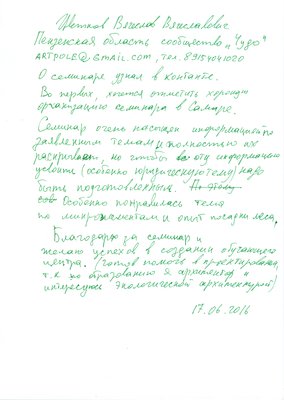 Цветков Вячеслав Вячеславович
Пензенская область сообщество „Чудо"
ARTPOLE@GMAIL.COM, тел. 8915 4041020
О семинаре узнал в контакте.
Во первых, хочется отметить хорошую
организацию семинара в Самаре.
Семинар очень насыщен информацией по
заявленным темам и полностью их
раскрывает, но чтобы всю эту информацию
усвоить (особенно юридическую тему) надо
быть подготовленным. По этому
Особенно понравилась тема
по микро и опыт посадки леса.
Благодарю за семинар и
желаю успехов в создании обучающего
центра. (готов помочь в проектировании,
т.к. по образованию я архитектор и
интересуюсь экологической архитектурой)
17.06.2016